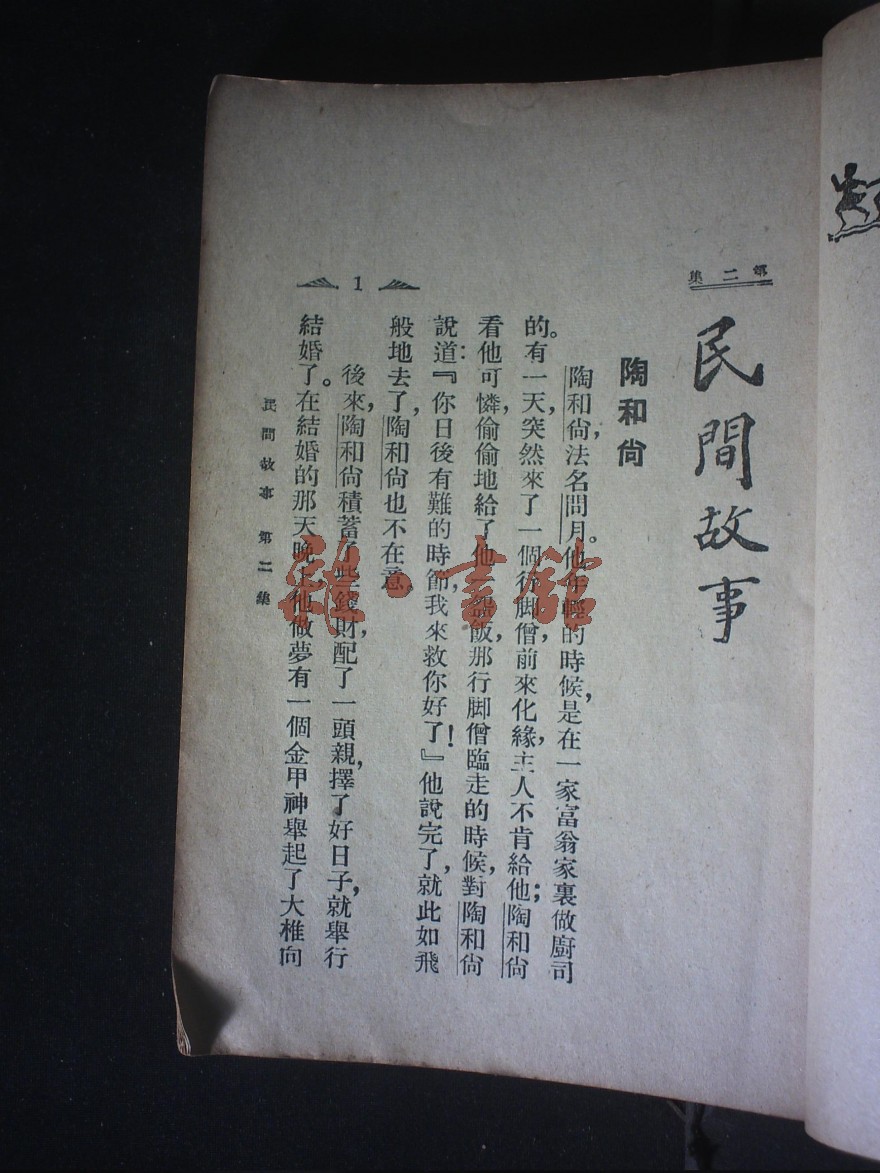 第二集
民間故事
陶和尙
陶和尙，法名問月。他年輕的時候，是在一家富翁家裏做廚司
的。有一天，突然來了一個行脚僧，前來化緣，主人不肯給他；陶和尙
看他可憐，偷偷地給了他一 飯，那行脚僧臨走的時候，對陶和尙
說道：『你日後有難的時節，我來救你好了！』他說完了，就此如飛
般地去了，陶和尙也不在意。
後來，陶和尙積蓄了些錢財，配了一頭親，擇了好日子，就舉行
結婚了。在結婚的那天晚上，他做夢有一個金甲神舉起了大椎向
1
民間故事 第二集
雜·書館